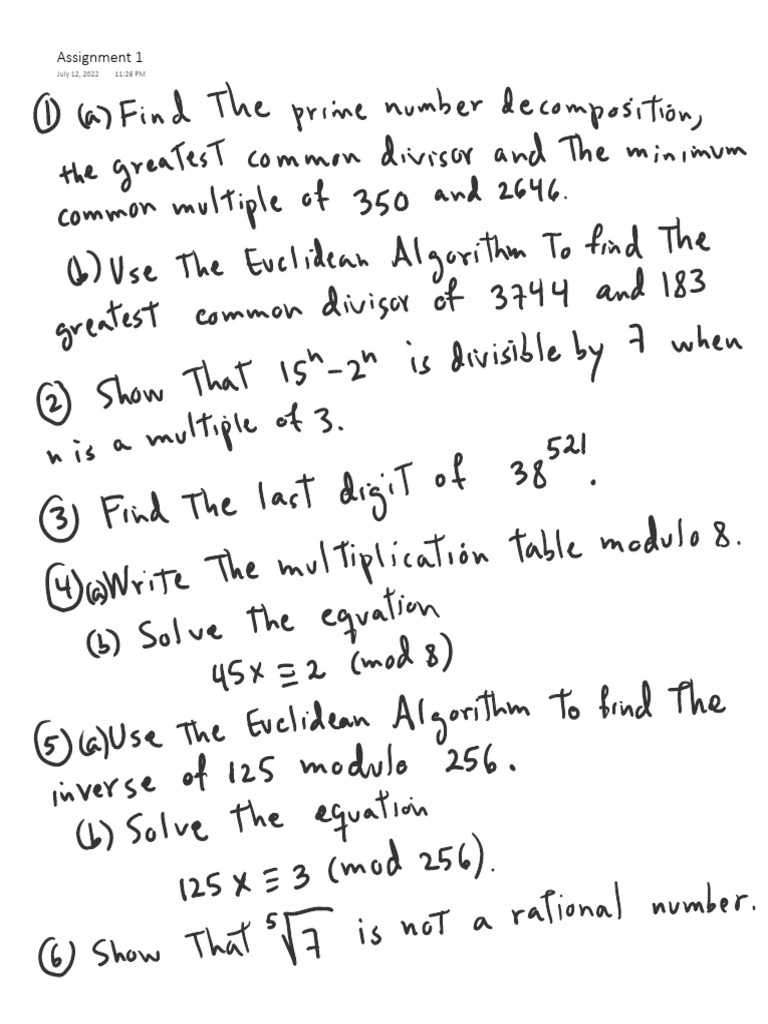 Assignment 1
July 12, 2022 11:26 PM
① (a) Find The prime number decomposition,
the greatest common divisor and The minimum
common multiple of 350 and 2646.
(b) Use The Euclidean Algorithm To find The
greatest common divisor of 3744 and 183
② Show That 15ⁿ-2ⁿ is divisible by 7 when
n is a multiple of 3.
③ Find The last digit of 38⁵²¹.
④ (a) Write The multiplication table modulo 8.
(b) Solve the equation
45x ≡ 2 (mod 8)
⑤ (a) Use The Euclidean Algorithm To find The
inverse of 125 modulo 256.
(b) Solve the equation
125x ≡ 3 (mod 256).
⑥ Show That ⁵√7 is not a rational number.